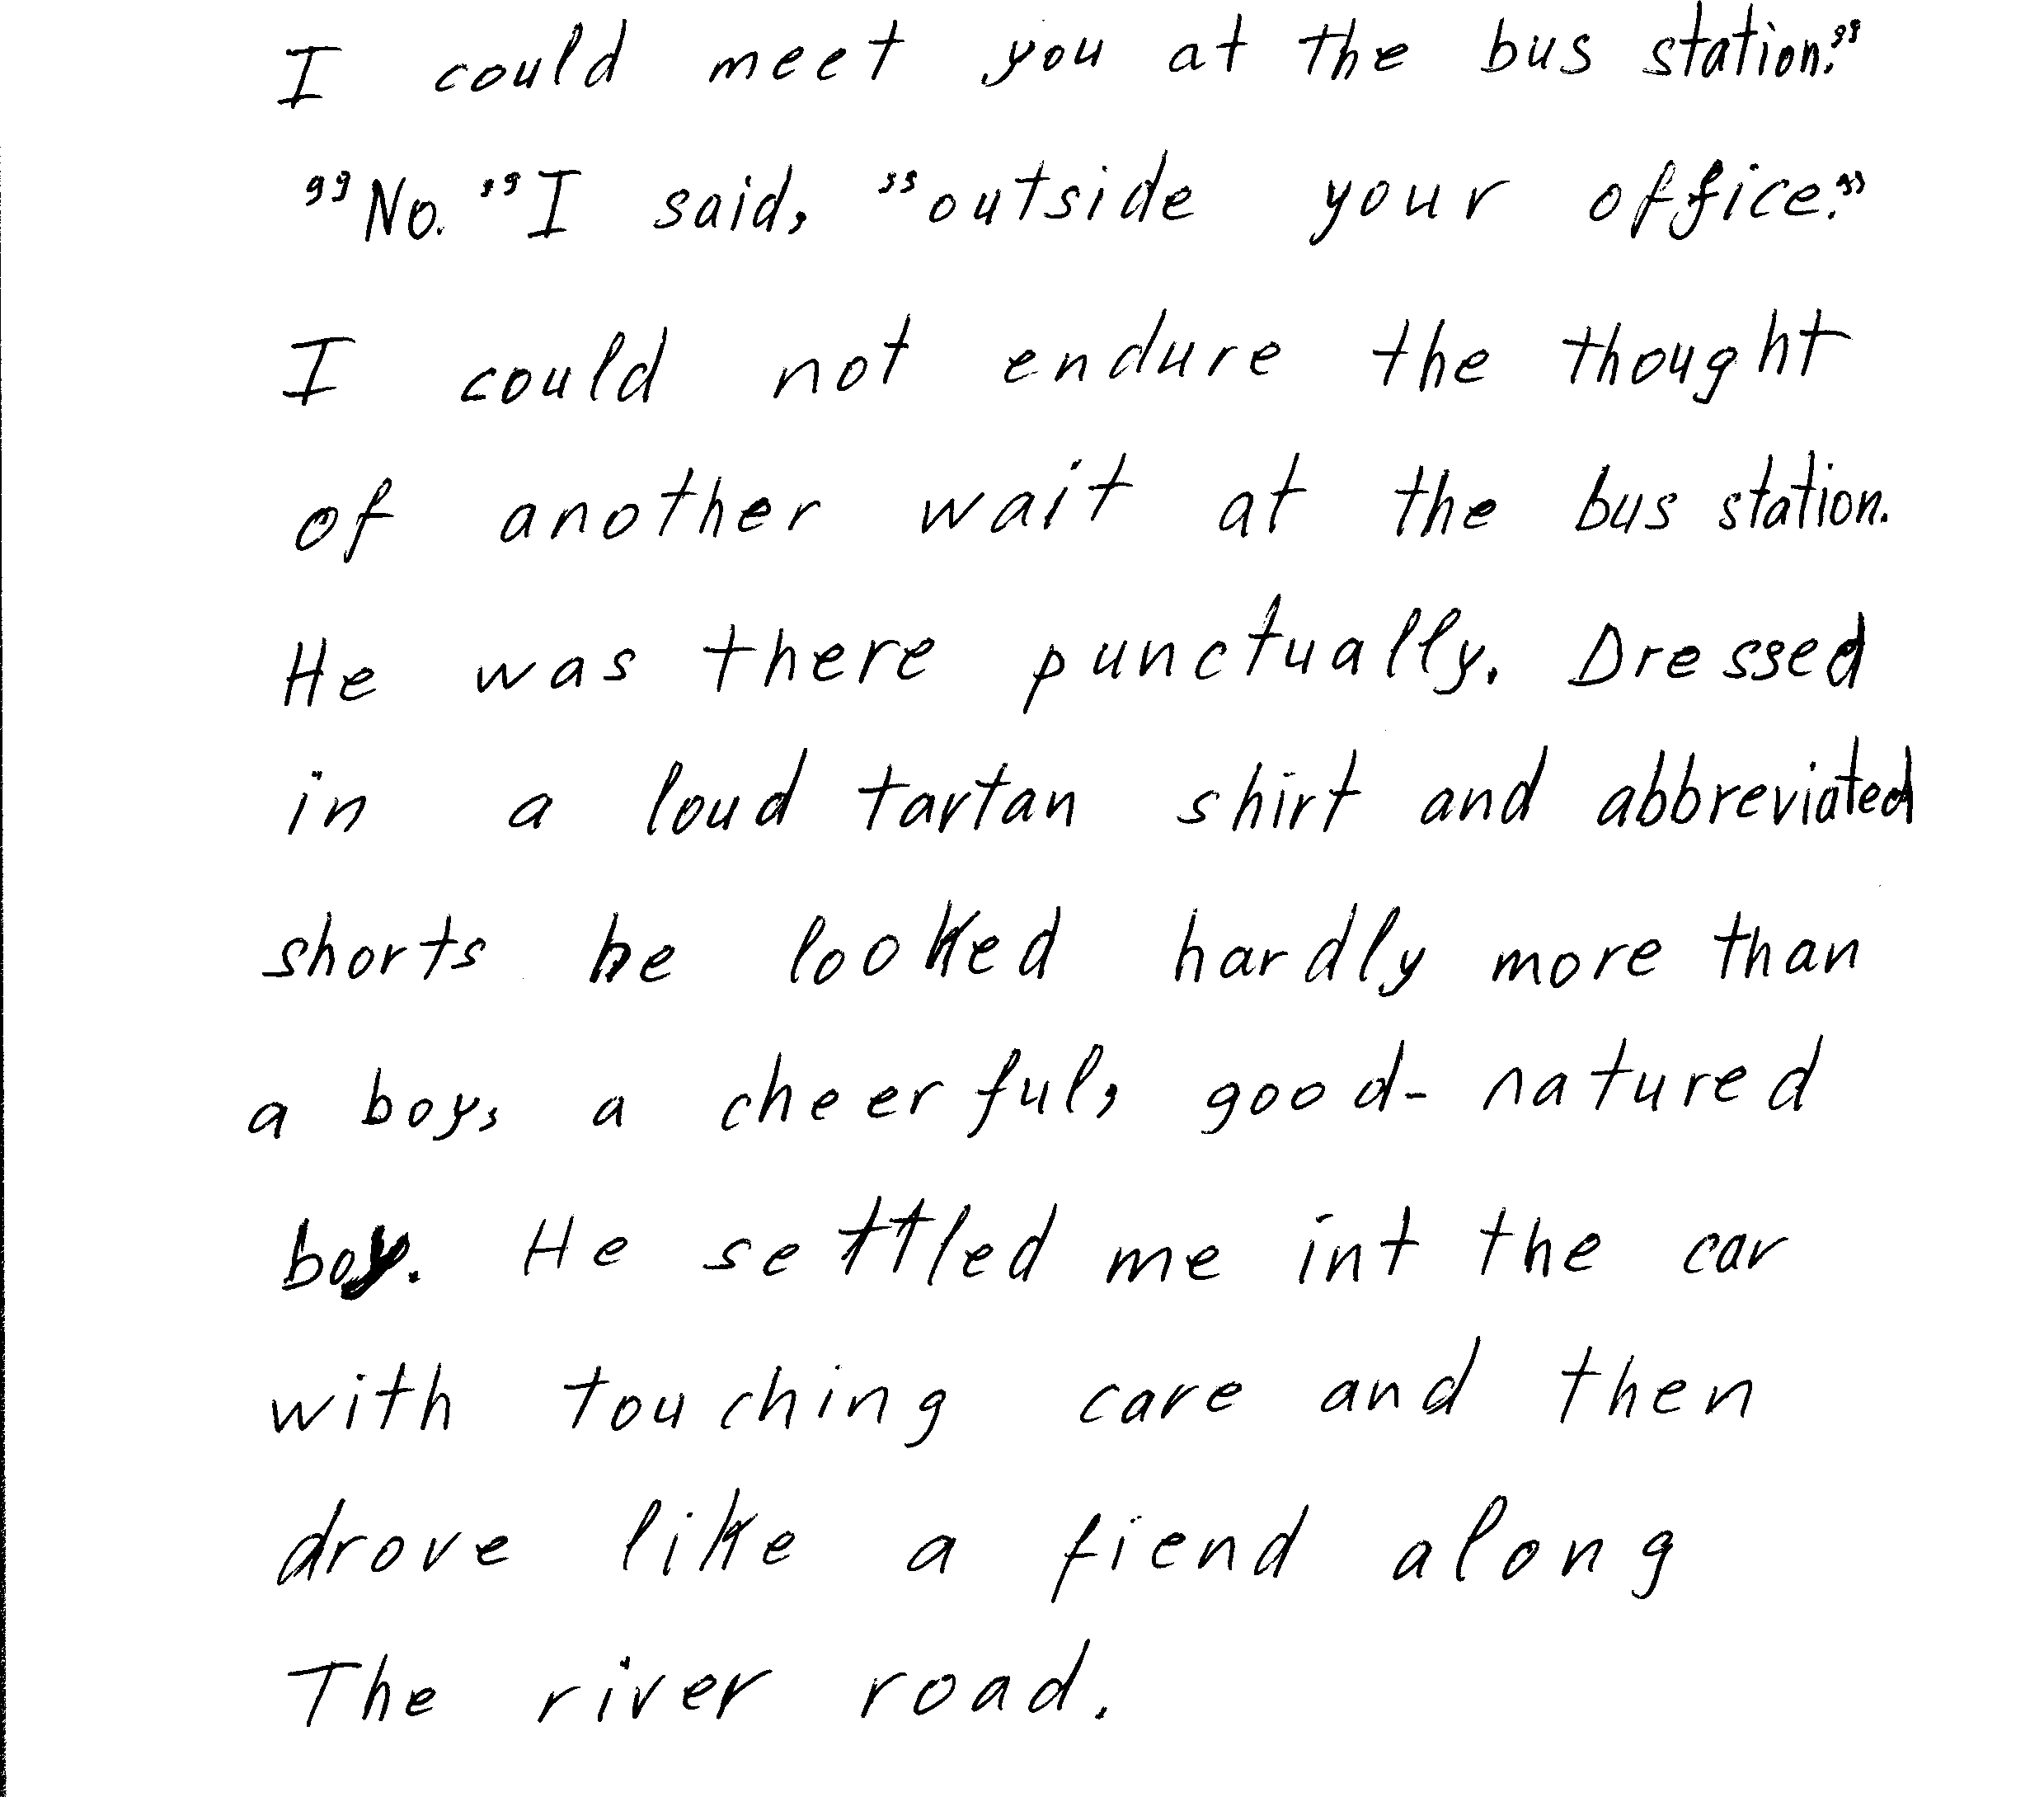 I could meet you at the bus station."
"No." I said, "outside your office."
I could not endure the thought
of another wait at the bus station.
He was there punctually. Dressed
in a loud tartan shirt and abbreviated
shorts he looked hardly more than
a boy, a cheerful, good-natured
boy. He settled me int the car
with touching care and then
drove like a fiend along
The river road.